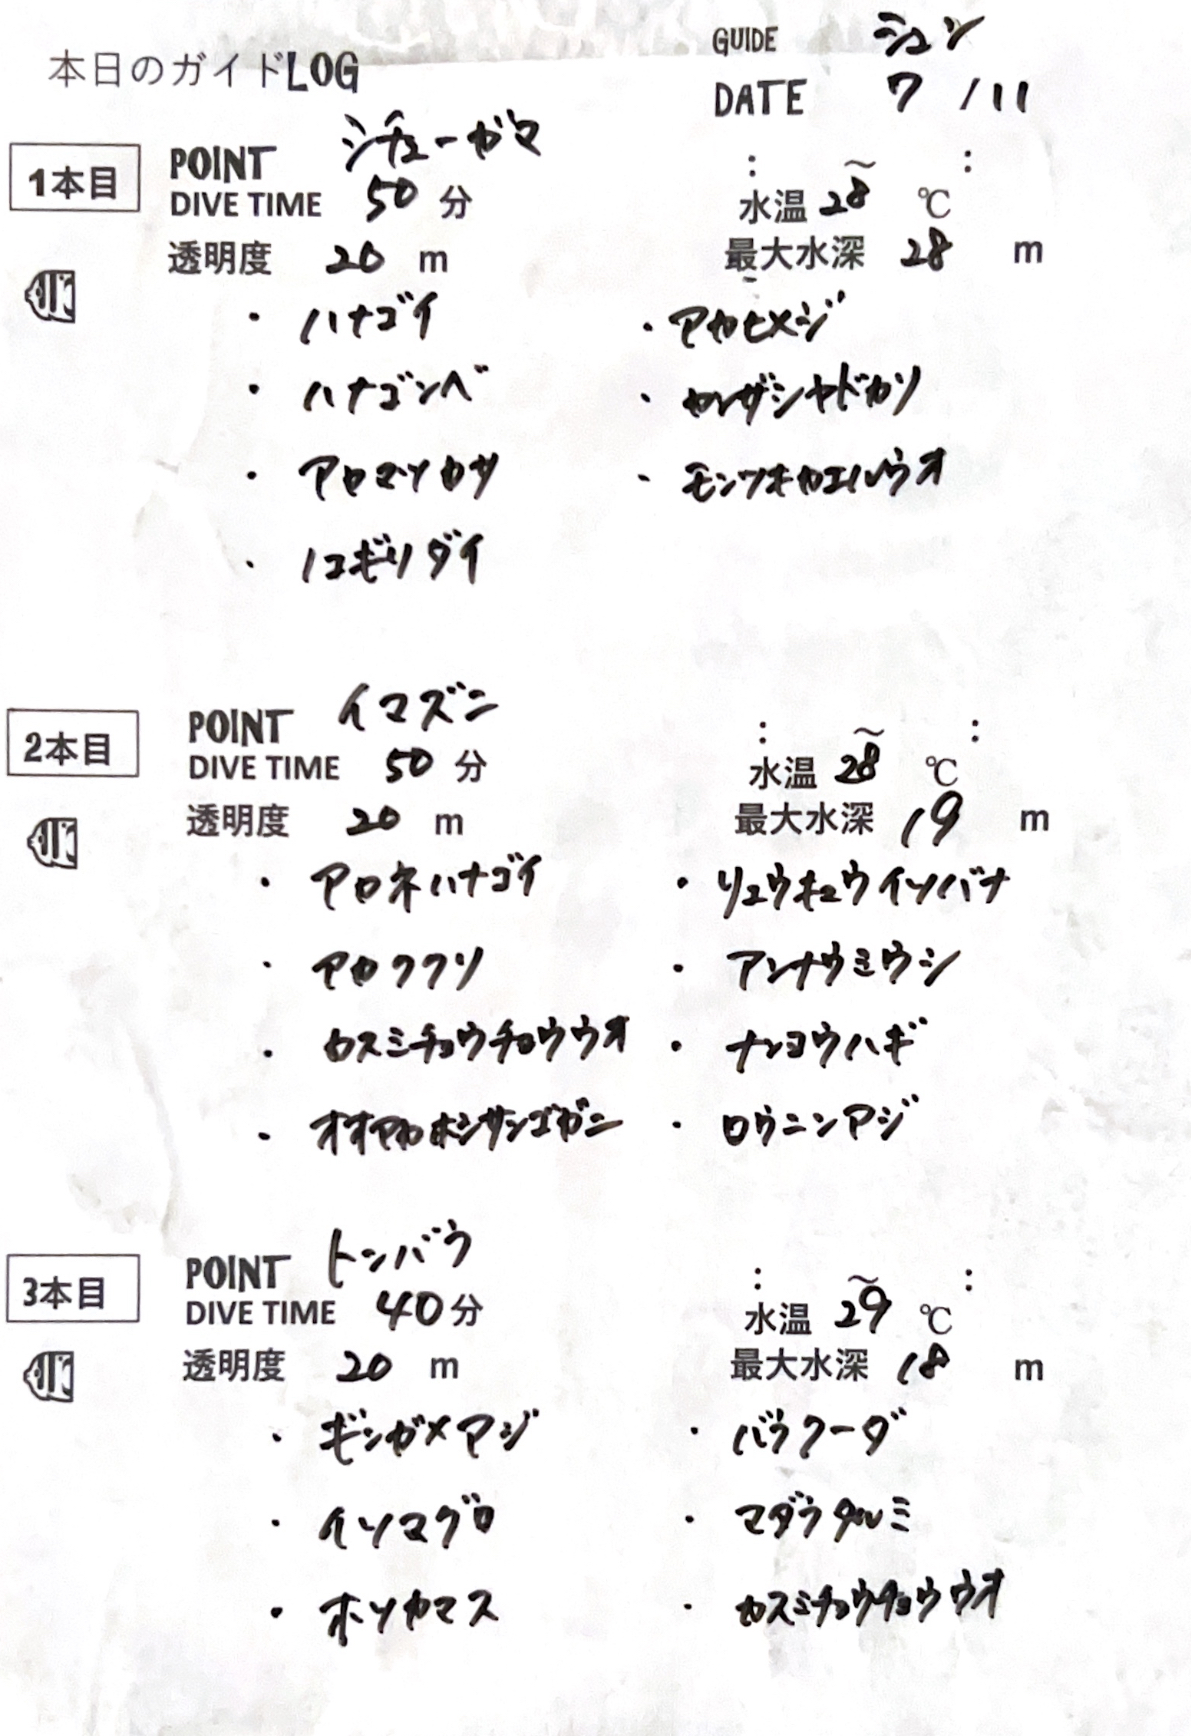 本日のガイドLOG
GUIDE シュン
DATE 7/11
1本目
POINT シチューガマ
: ～ :
DIVE TIME 50 分
水温 28 ℃
透明度 20 m
最大水深 28 m
・ハナゴイ
・アカヒメジ
・ハナゴンベ
・カンザシヤドカリ
・アカマツカサ
・モンツキカエルウオ
・ノコギリダイ
2本目
POINT イマズニ
: ～ :
DIVE TIME 50 分
水温 28 ℃
透明度 20 m
最大水深 19 m
・アカネハナゴイ
・リュウキュウイソバナ
・アカククリ
・アンナウミウシ
・カスミチョウチョウウオ
・ナンヨウハギ
・オオアカホシサンゴガニ
・ロウニンアジ
3本目
POINT トンバラ
: ～ :
DIVE TIME 40 分
水温 29 ℃
透明度 20 m
最大水深 18 m
・ギンガメアジ
・バラクーダ
・イソマグロ
・マダラタルミ
・ホソカマス
・カスミチョウチョウウオ